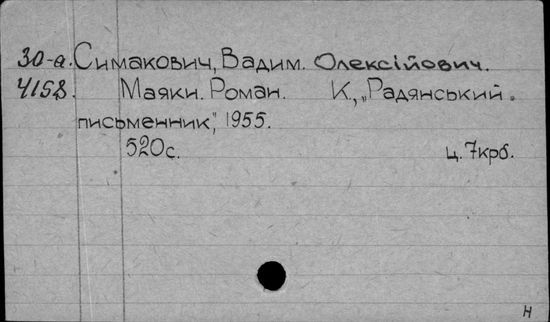 30-а. Симакович, Вадим. Олексійович.
4158. Маяки. Роман. К., „Радянський
письменник", 1955.
520 с. ц. 7крб.
н